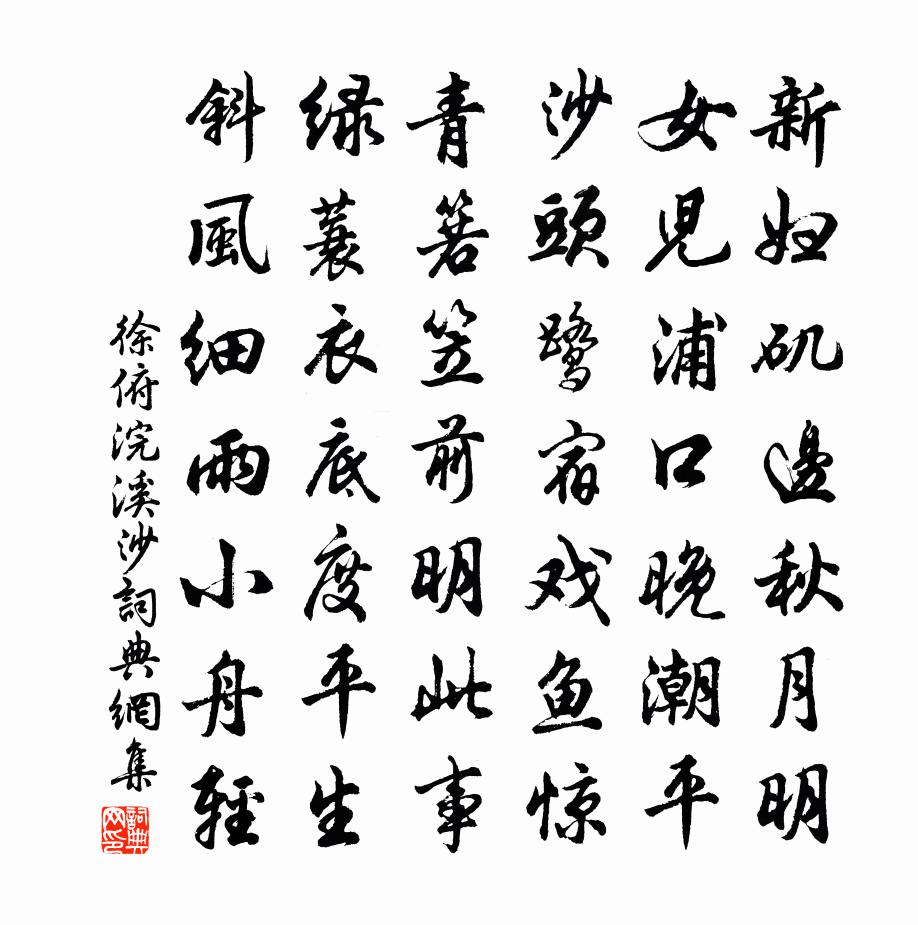 新妇矶邊秋月明
女児浦口晚潮平
沙頭鹭宿戏鱼惊
青箬笠前明此事
绿蓑衣底度平生
斜風细雨小舟輕
徐俯浣溪沙詞典網集
詞典网印